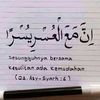 إِنَّ مَعَ الْعُسْرِ يُسْرًا
Sesungguhnya bersama
kesulitan ada kemudahan
(Qs. Asy-Syarh : 6)